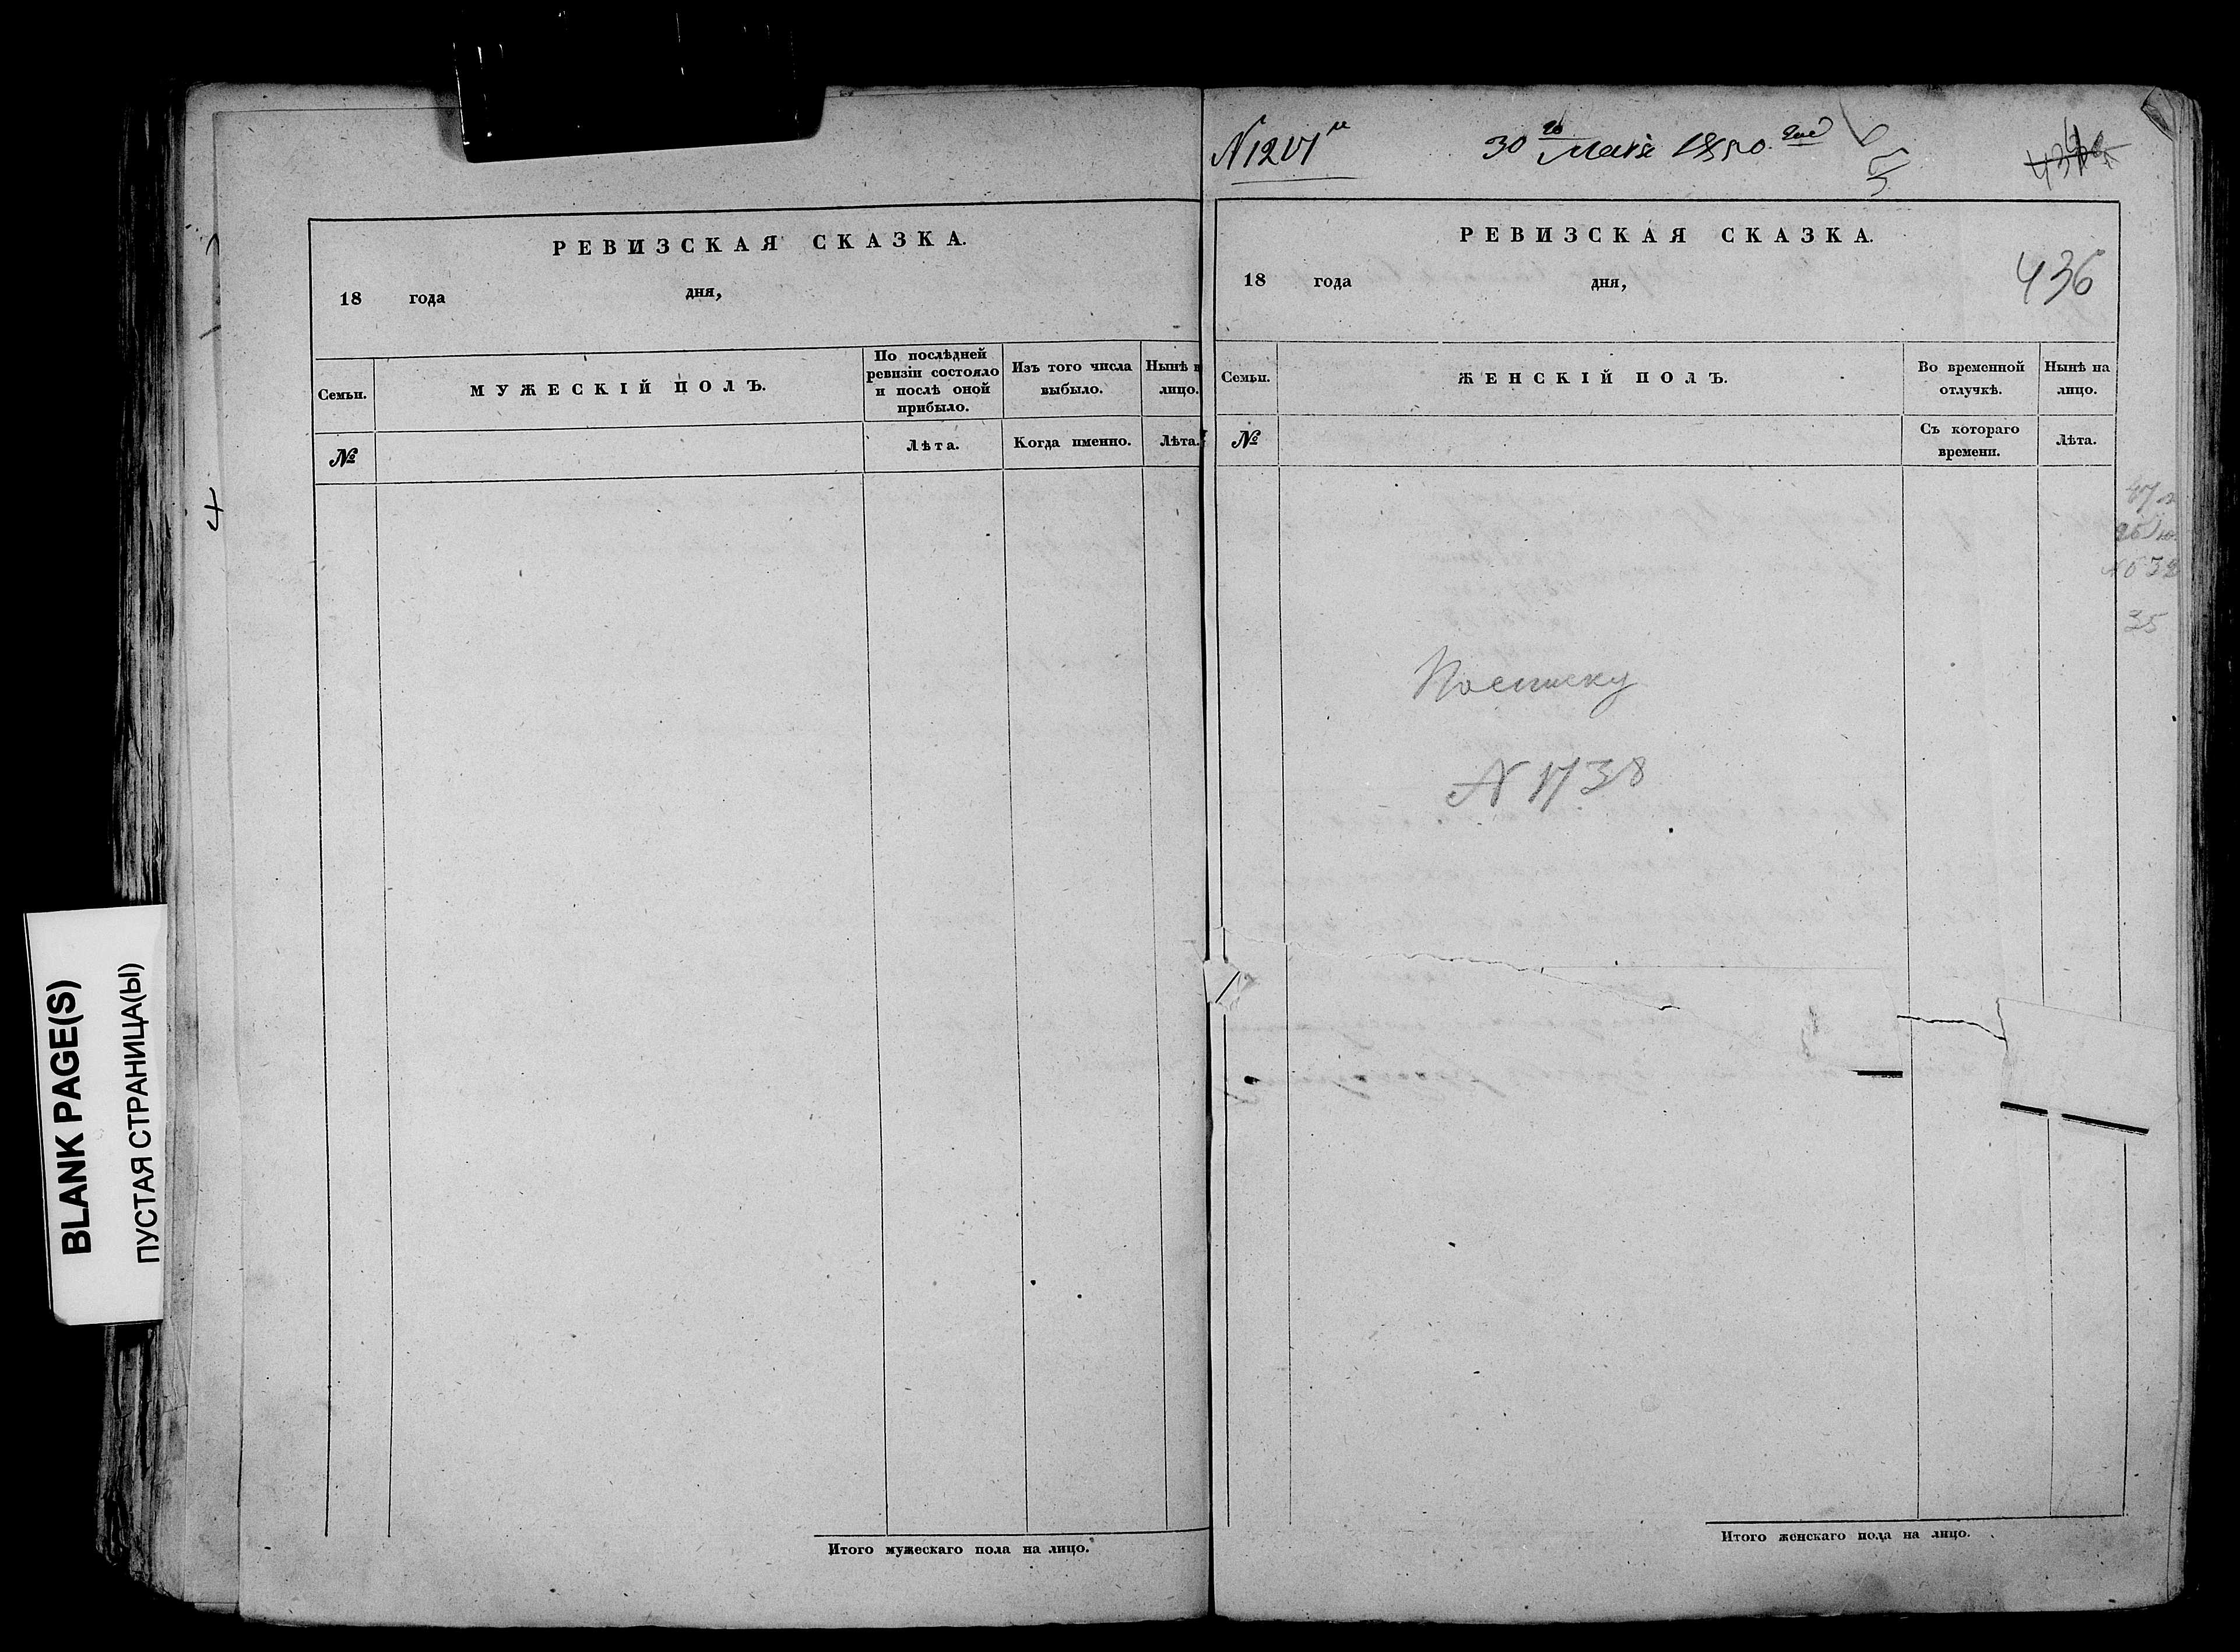 BLANK PAGE(S)
ПУСТАЯ СТРАНИЦА(Ы)
РЕВИЗСКАЯ СКАЗКА.
18 года дня,
Семьи.
МУЖЕСКІЙ ПОЛЪ.
По послѣдней
ревизіи состояло
и послѣ оной
прибыло.
Изъ того числа
выбыло.
Нынѣ н
лицо.
№
Лѣта.
Когда именно.
Лѣта.
Итого мужескаго пола на лицо.
30го Маія 1850. года
РЕВИЗСКАЯ СКАЗКА.
436
18 года дня,
Семьи.
ЖЕНСКІЙ ПОЛЪ.
Во временной
отлучкѣ.
Нынѣ на
лицо.
№
Съ котораго
времени.
Лѣта.
35
По списку
N 1738
Итого женскаго пола на лицо.